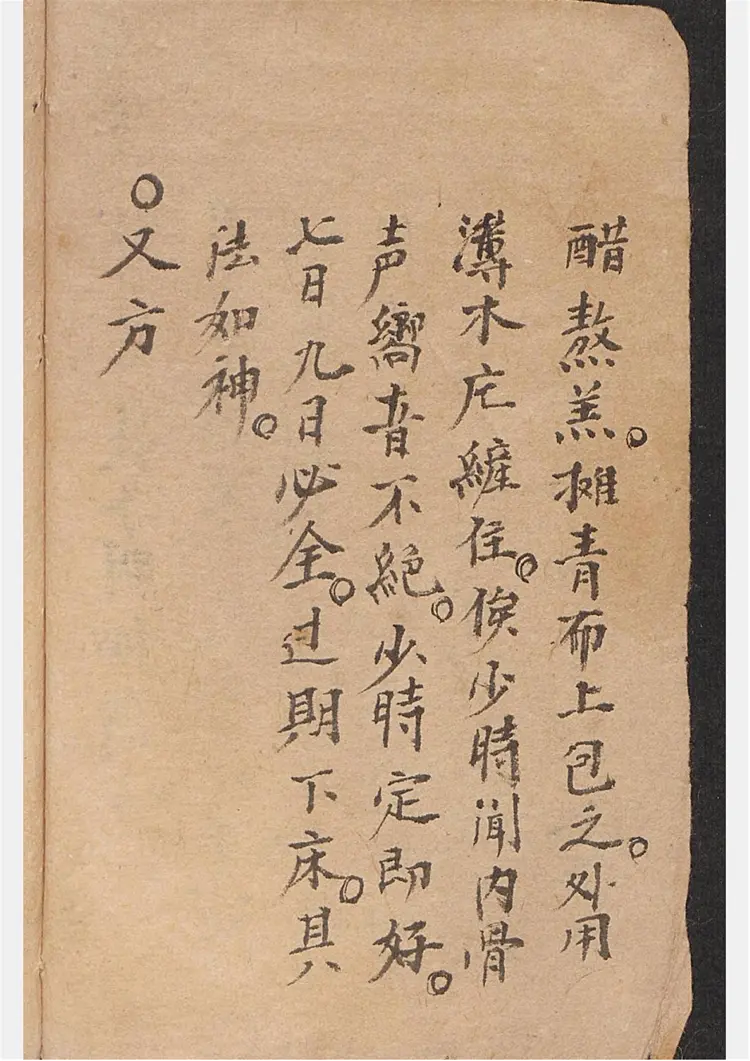 醋熬羔。摊青布上包之。外用
薄木庄纏住。俟少時闻内骨
声嚮音不絕。少時定即好。
七日九日必全。过期下床。其
法如神。
○又方